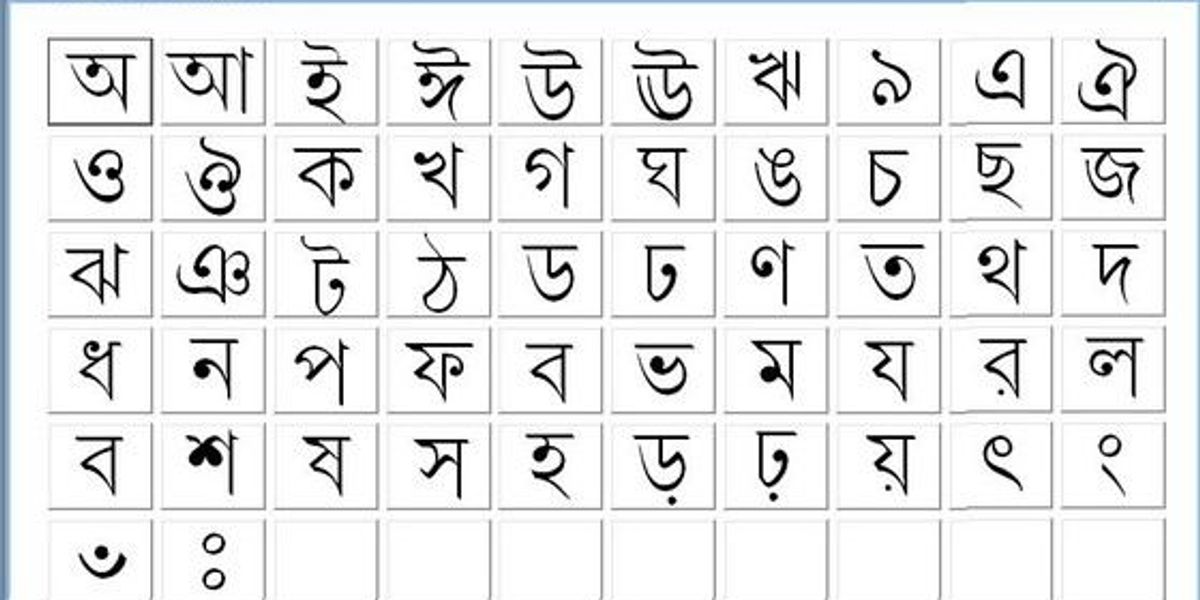 অ আ ই ঈ উ ঊ ঋ ঌ এ ঐ
ও ঔ ক খ গ ঘ ঙ চ ছ জ
ঝ ঞ ট ঠ ড ঢ ণ ত থ দ
ধ ন প ফ ব ভ ম য র ল
ব শ ষ স হ ড় ঢ় য় ৎ ং
ঁ ঃ